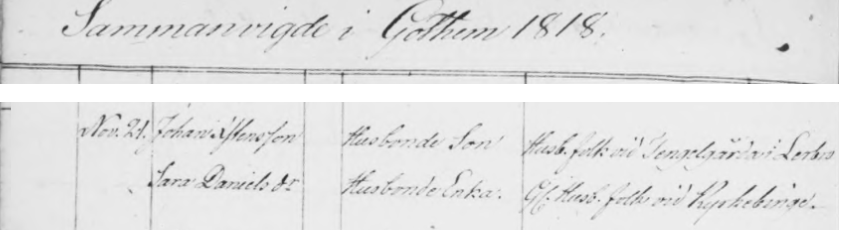 Sammanvigde i Gothem 1818.
Nov. 21. Johan Olofsson Husbonde Son Husb. folk vid Tengelgårda i Lerbro
Sara Daniels dr Husbonde Enka. Gl. Husb. folk vid Kyrkebinge.